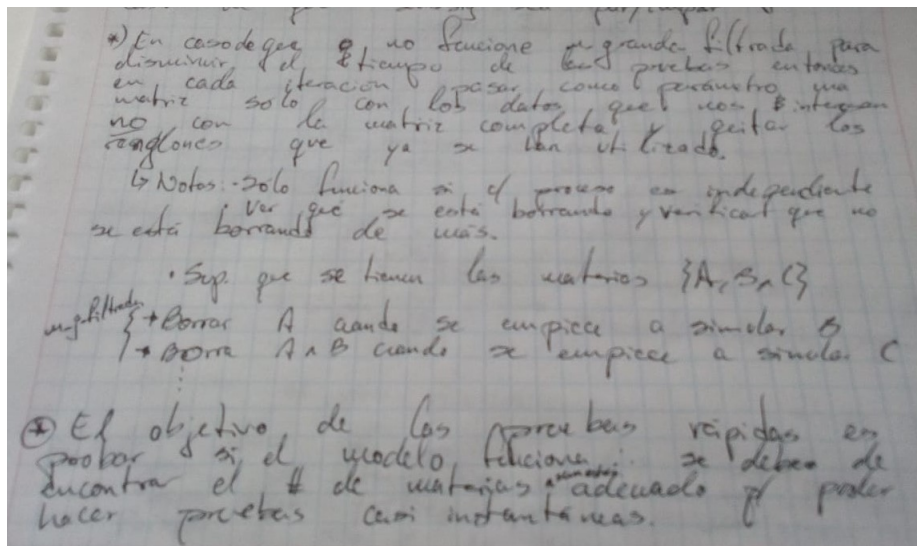 *) En caso de que no funcione m-grande-filtrada para
disminuir el tiempo de las pruebas entonces
en cada iteración pasar como parámetro una
matriz solo con los datos que nos interesan
no con la matriz completa y quitar los
renglones que ya se han utilizado.
↳ Notas: · Sólo funciona si el proceso es independiente
· Ver qué se está borrando y verificar que no
se está borrando de más.
· Sup. que se tienen las materias {A, B, C}
m-g-filtrada → Borrar A cuando se empiece a simular B
→ Borra A ∧ B cuando se empiece a simular C
⋮
* El objetivo de las pruebas rápidas es
probar si el modelo funciona ∴ se debe de
encontrar el # de materias adecuado p/ poder
hacer pruebas casi instantáneas.